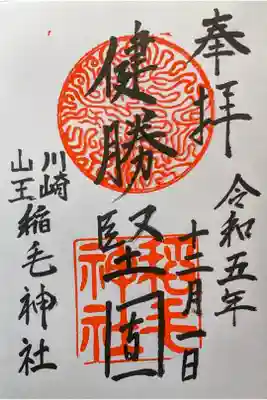 奉拝
令和五年
十二月一日
健勝
堅固
稲毛神社
川崎
山王
稲毛神社